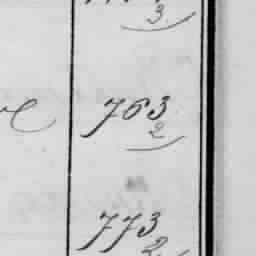 3
763
2
773
2